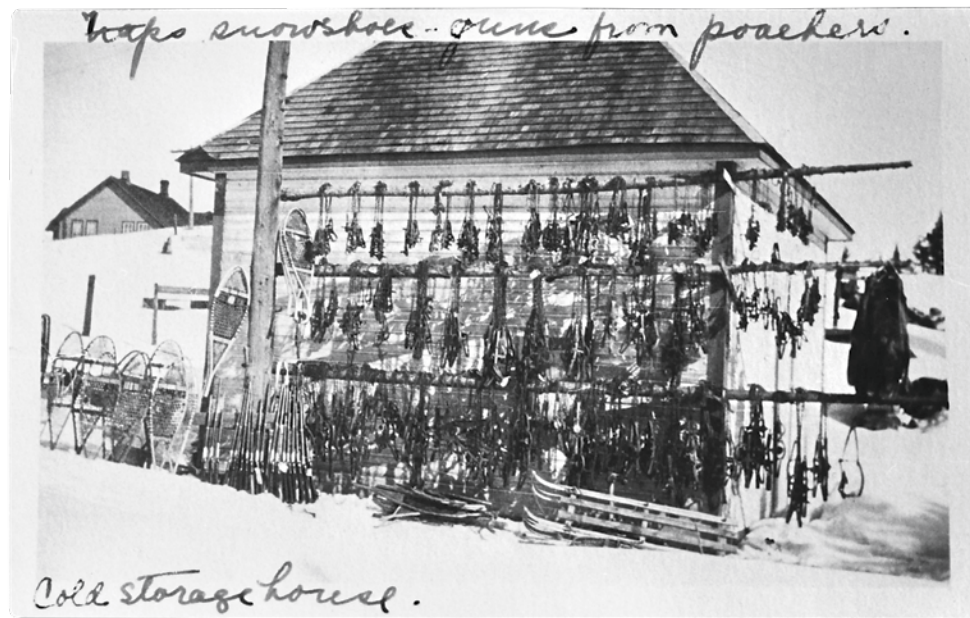 Traps snowshoes - guns from poachers.
Cold storage house.